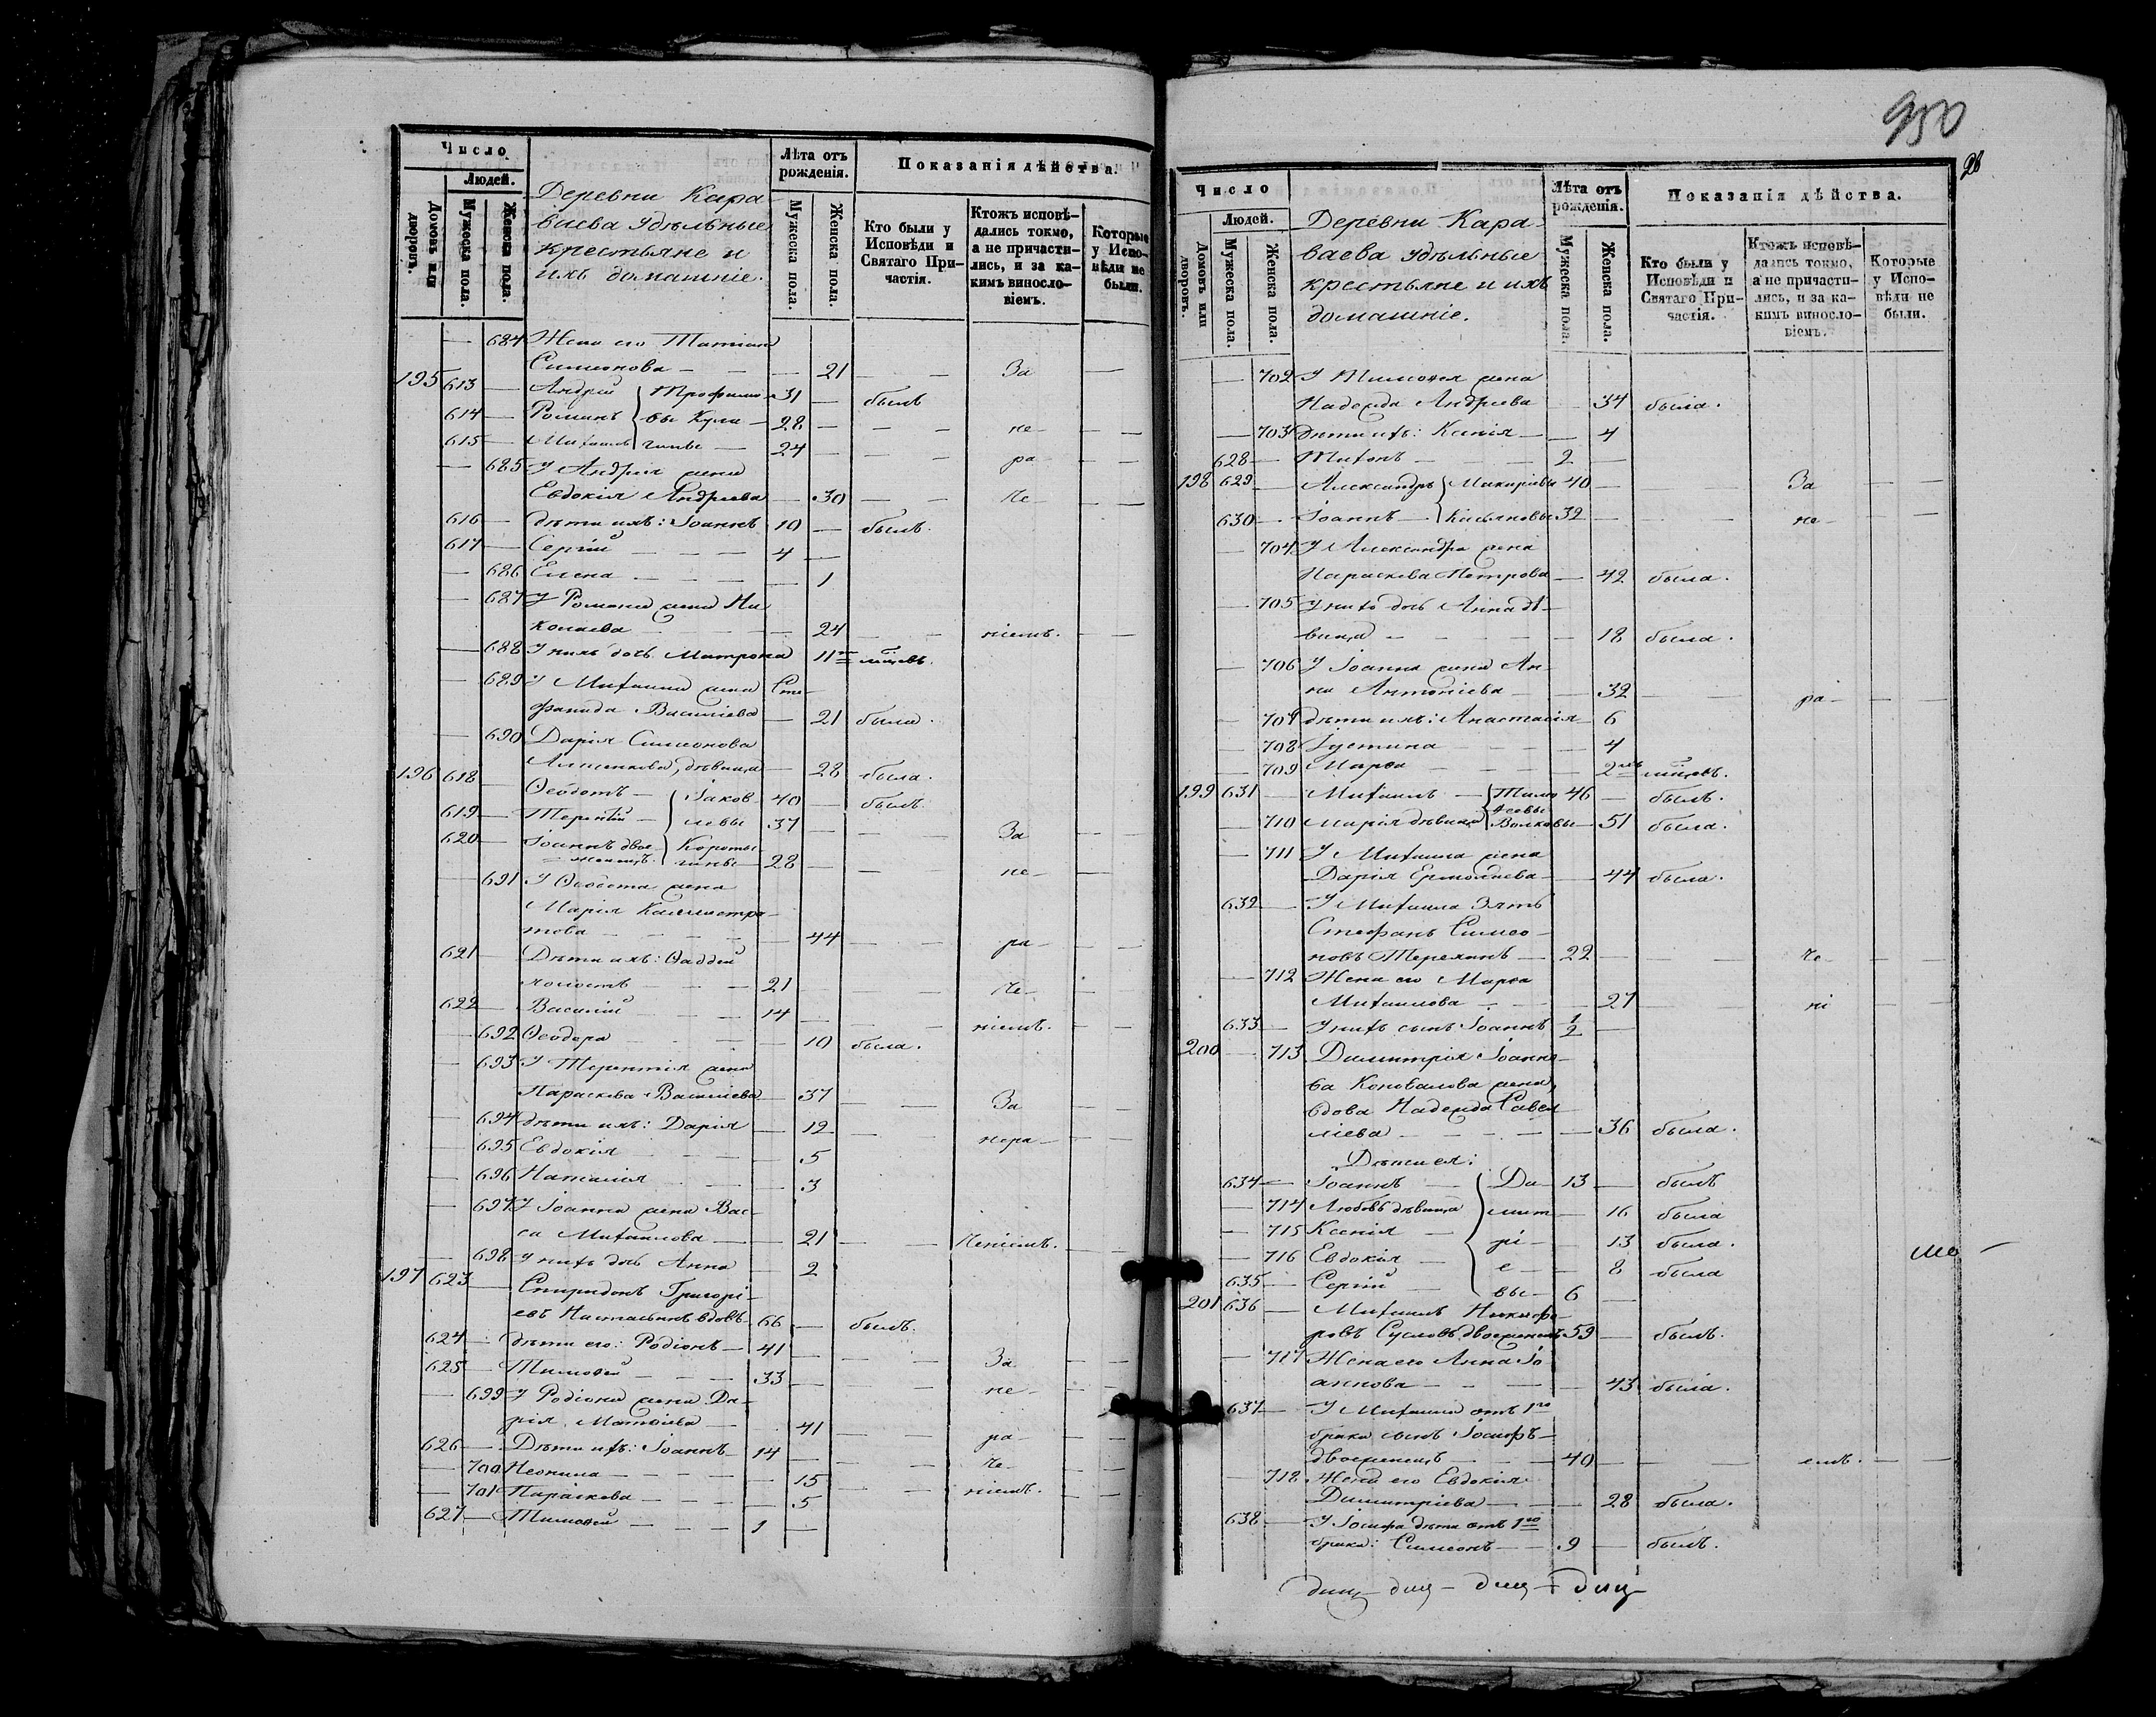 Число
Людей.
Домовъ или дворовъ.
Мужеска пола.
Женска пола.
Деревни Кара-
ваева удѣльные
крестьяне и
ихъ домашніе.
Лѣта отъ рожденія.
Мужеска пола.
Женска пола.
Показанія дѣйства.
Кто были у Исповѣди и Святаго При-частія.
Ктожъ исповѣ-дались токмо, а не причасти-лись, и за ка-кимъ винословіемъ.
Которые у Испо-вѣди не были.
684 Жена его Татіана
Симеонова — 21 — За —
195 613 — Андрей Трофимо- 31 — былъ
614 — Романъ вы Кула- 28 — не —
615 — Михаилъ гины — 24 — ра —
685 У Андрея жена
Евдокія Андреева — 30 — Че —
616 — дѣти ихъ: Іоаннъ 10 — былъ.
617 — Сергій — 4 —
— 686 Елена — 1
— 687 У Романа жена Ни-
колаева — 24 — ніемъ. —
— 688 У нихъ дочь Матрона 11 мѣсяцевъ.
— 689 У Михаила жена Сте-
фанида Василіева — 21 была.
— 690 Дарія Симеонова
дѣвица — 28 была.
196 618 — Ѳеодотъ — Іаков- 40 — былъ
619 — Терентій — левы 37 — За
620 — Іоаннъ двое- Короты-
женецъ. гины — 28 — не —
— 691 У Ѳеодота жена
Марія Каллистра-
това — 44 — ра —
621 — Дѣти ихъ: Ѳаддей
холостъ — 21 — Че —
622 — Василій — 14 — ніемъ. —
— 692 Ѳеодора — 10 была.
— 693 У Терентія жена
Параскева Василіева — 37 — За —
— 694 дѣти ихъ: Дарія — 12 — нера —
— 695 Евдокія — 5
— 696 Наталія — 3
— 697 У Іоанна жена Вас-
са Михаилова — 21 — Ченіемъ. —
— 698 У нихъ дочь Анна — 2
197 623 — Спиридонъ Григорі-
евъ вдовъ 66 — былъ.
624 — дѣти его: Родіонъ — 41 — За —
625 — Тимоѳей — 33 — не —
— 699 У Родіона жена Да-
рія Матвіева — 41 — ра —
626 — Дѣти ихъ: Іоаннъ 14 — Че —
— 700 Неонила — 15 — ніемъ. —
— 701 Параскева — 5
627 — Тимоѳей — 1 —
950
26
Число
Людей.
Домовъ или дворовъ.
Мужеска пола.
Женска пола.
Деревни Кара-
ваева удѣльные
крестьяне и ихъ
домашніе.
Лѣта отъ рожденія.
Мужеска пола.
Женска пола.
Показанія дѣйства.
Кто были у Исповѣди и Святаго При-частія.
Ктожъ исповѣ-дались токмо, а не причасти-лись, и за ка-кимъ винословіемъ.
Которые у Испо-вѣди не были.
— 702 У Тимоѳея жена
Надежда Андреева — 34 была.
— 703 дѣти ихъ: Ксенія — 4
628 — Тихонъ — 2 —
198 629 — Александръ Макаріевы 40 — За —
630 — Іоаннъ — Касьяновы 32 — не —
— 704 У Александра жена
Параскева Петрова — 42 была.
— 705 У нихъ дочь Анна дѣ-
вица — 18 была.
— 706 У Іоанна жена Ан-
на Антоніева — 32 — ра —
— 707 дѣти ихъ: Анастасія — 6
— 708 Іустина — 4
— 709 Марѳа — 2 мѣсяцевъ.
199 631 — Михаилъ — Тимо- 46 — былъ.
ѳеевы
— 710 Марія дѣвица Волковы — 51 была.
— 711 У Михаила жена
Дарія Ермолаева — 44 была.
632 — У Михаила Зять
Стефанъ Симео-
новъ Терехинъ — 22 — Че —
— 712 Жена его Марѳа
Михаилова — 27 — ні —
633 — У нихъ сынъ Іоаннъ 1/2 —
200 — 713 Димитрія Іоанно-
ва Коновалова жена
вдова Надежда Савел-
ліева — 36 была.
Дѣти ея:
634 — Іоаннъ — Ди- 13 — былъ
— 714 Любовь дѣвица мит- 16 была
— 715 Ксенія — рі- 13 была.
— 716 Евдокія — е- 8 была
635 — Сергій — вы — 6 —
201 636 — Михаилъ Никифо-
ровъ Сусловъ двоеженецъ 59 — былъ.
— 717 Жена его Анна Іо-
аннова — 43 была.
637 — У Михаила отъ 1го
брака сынъ Іосифъ —
двоеженецъ — 40 — емъ. —
— 718 Жена его Евдокія
Димитріева — 28 была.
638 — У Іосифа дѣти отъ 1го
брака: Симеонъ — 9 — былъ.